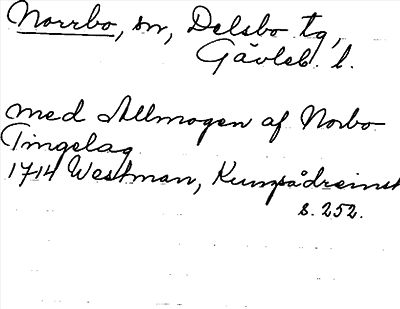 Norrbo, sn, Delsbo tg,
Gävleb. l.
med Allmogen af Norbo
Tingelag
1714 Westman, Kungsådreinst
s. 252.